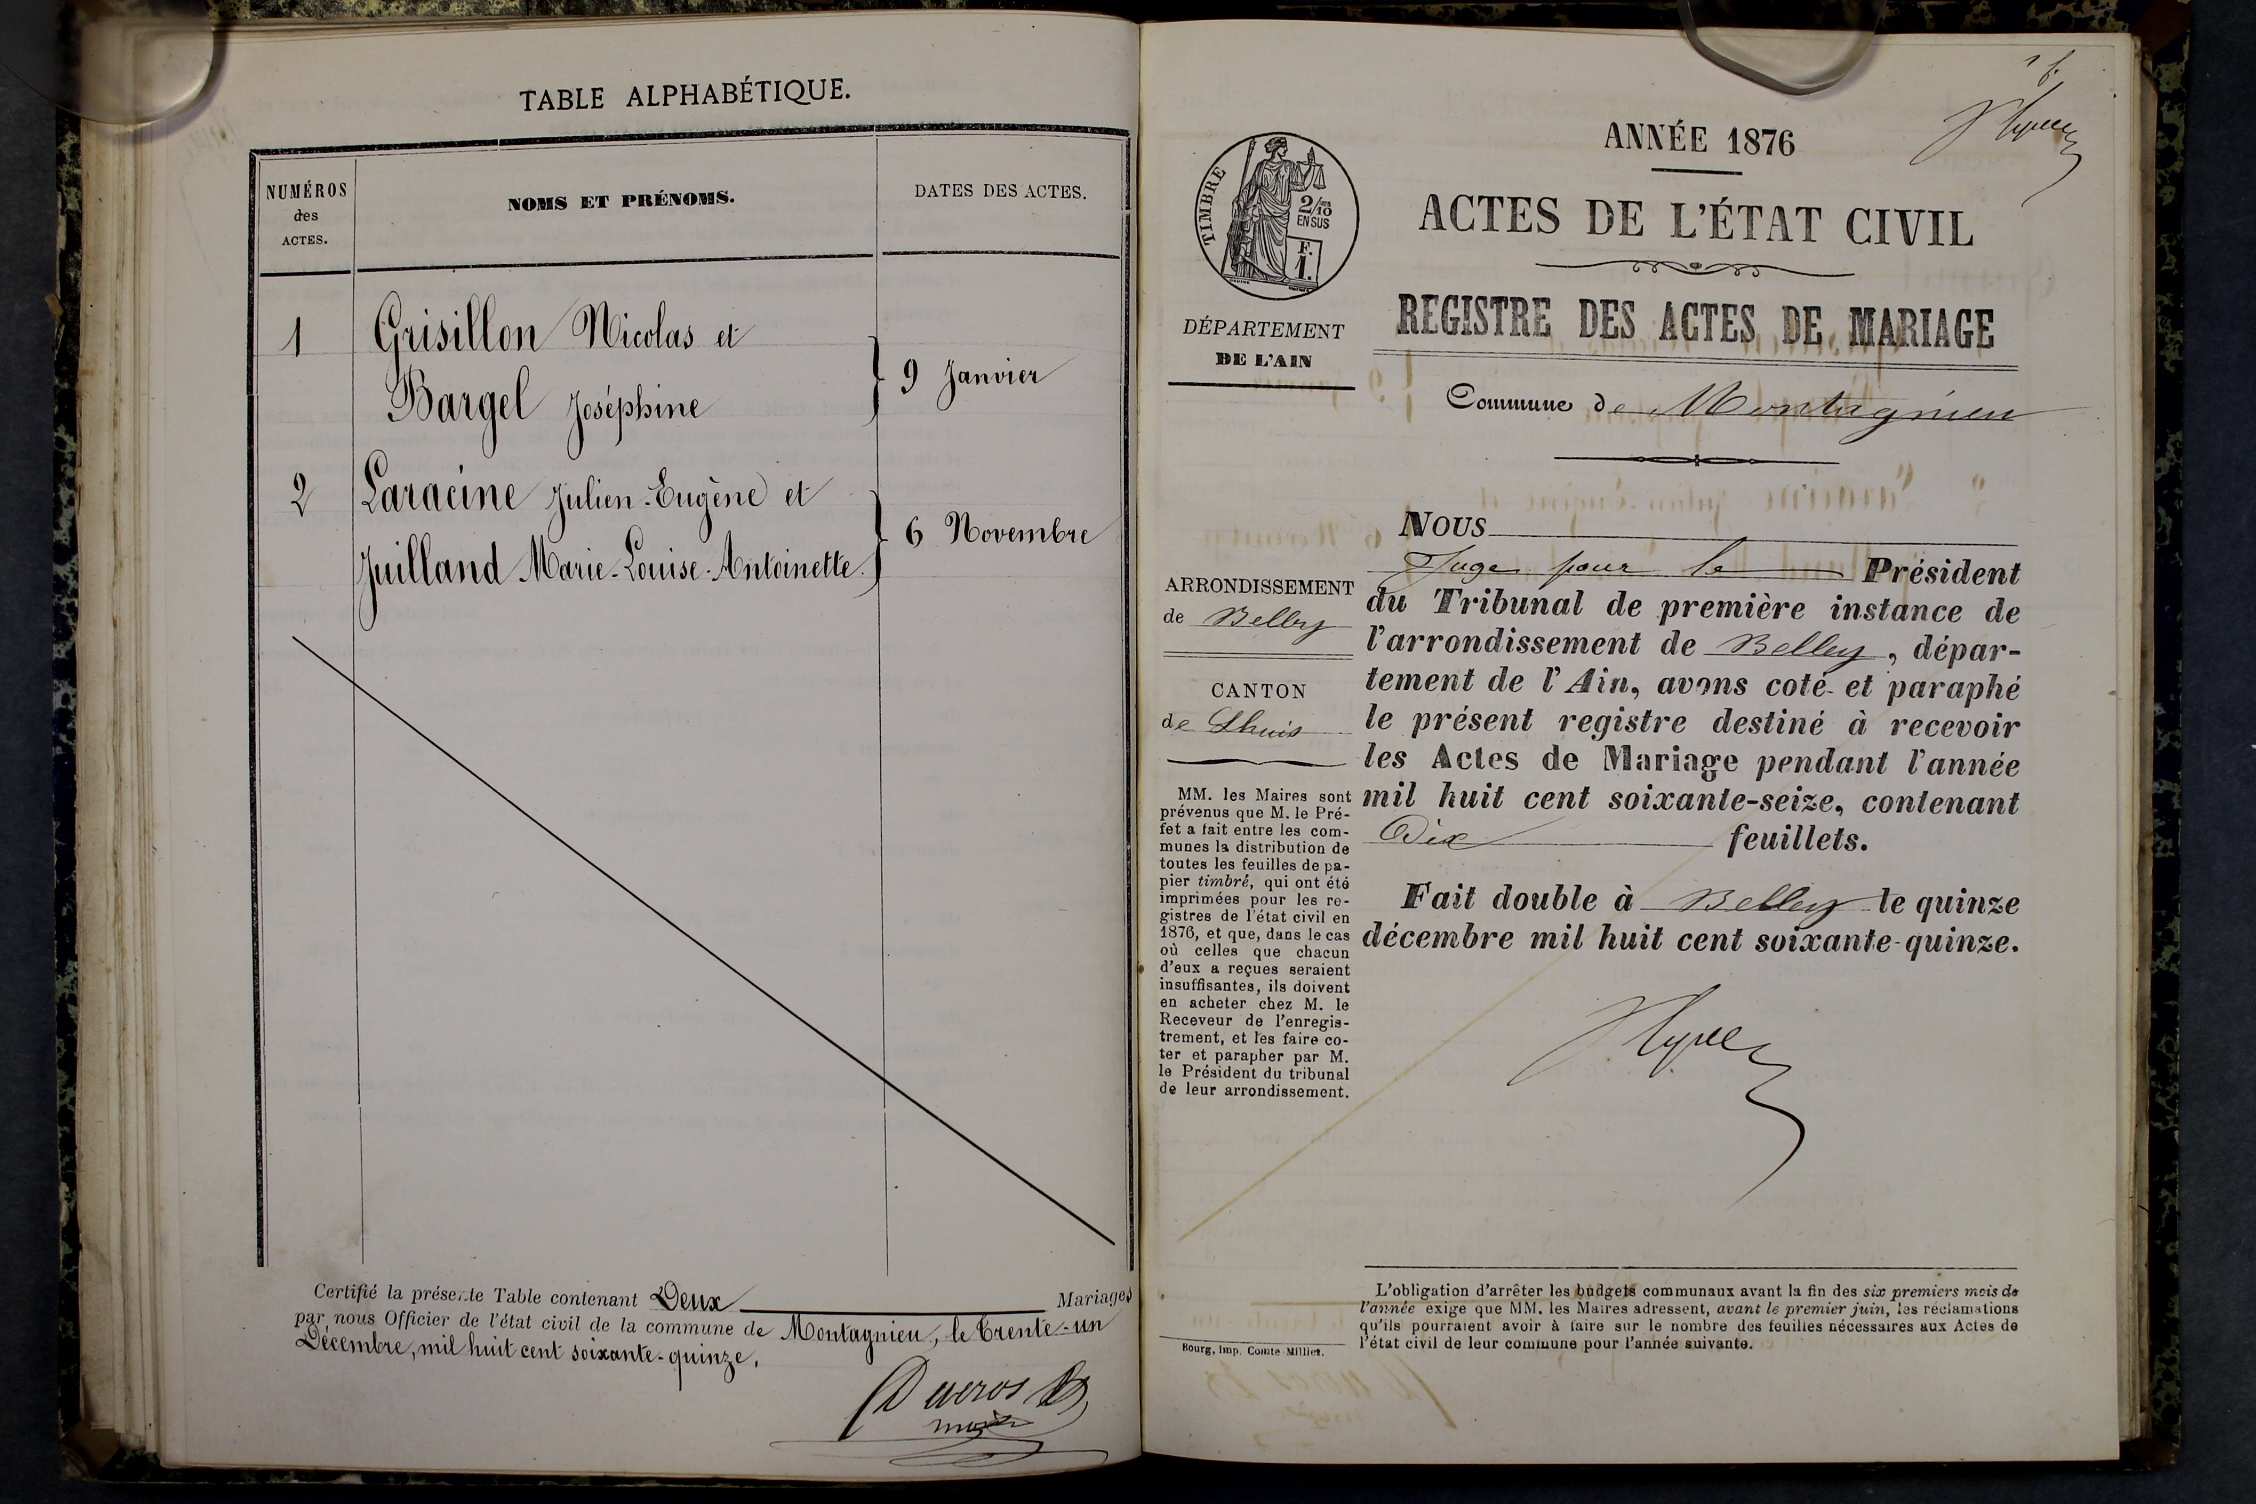 TABLE ALPHABÉTIQUE.
NUMÉROS
des
ACTES.
NOMS ET PRÉNOMS.
DATES DES ACTES.
1 Grisillon Nicolas et
Bargel Joséphine
9 Janvier
2 Laracine Julien-Eugène et
Juilland Marie-Louise-Antoinette
6 Novembre
Certifié la présente Table contenant Deux Mariages
par nous Officier de l'état civil de la commune de Montagnieu, le Trente-un
Décembre, mil huit cent soixante-quinze.
TIMBRE
2/10
EN SUS
F.
1.
DÉPARTEMENT
DE L'AIN
ARRONDISSEMENT
de Belley
CANTON
de Lhuis
MM. les Maires sont
prévenus que M. le Pré-
fet a fait entre les com-
munes la distribution de
toutes les feuilles de pa-
pier timbré, qui ont été
imprimées pour les re-
gistres de l'état civil en
1876, et que, dans le cas
où celles que chacun
d'eux a reçues seraient
insuffisantes, ils doivent
en acheter chez M. le
Receveur de l'enregis-
trement, et les faire co-
ter et parapher par M.
le Président du tribunal
de leur arrondissement.
Bourg, imp. Comte-Milliet.
ANNÉE 1876
ACTES DE L'ÉTAT CIVIL
REGISTRE DES ACTES DE MARIAGE
Commune de Montagnieu
NOUS
Juge pour le Président
du Tribunal de première instance de
l'arrondissement de Belley, dépar-
tement de l'Ain, avons coté et paraphé
le présent registre destiné à recevoir
les Actes de Mariage pendant l'année
mil huit cent soixante-seize, contenant
Dix feuillets.
Fait double à Belley le quinze
décembre mil huit cent soixante-quinze.
L'obligation d'arrêter les budgets communaux avant la fin des six premiers mois de
l'année exige que MM. les Maires adressent, avant le premier juin, les réclamations
qu'ils pourraient avoir à faire sur le nombre des feuilles nécessaires aux Actes de
l'état civil de leur commune pour l'année suivante.